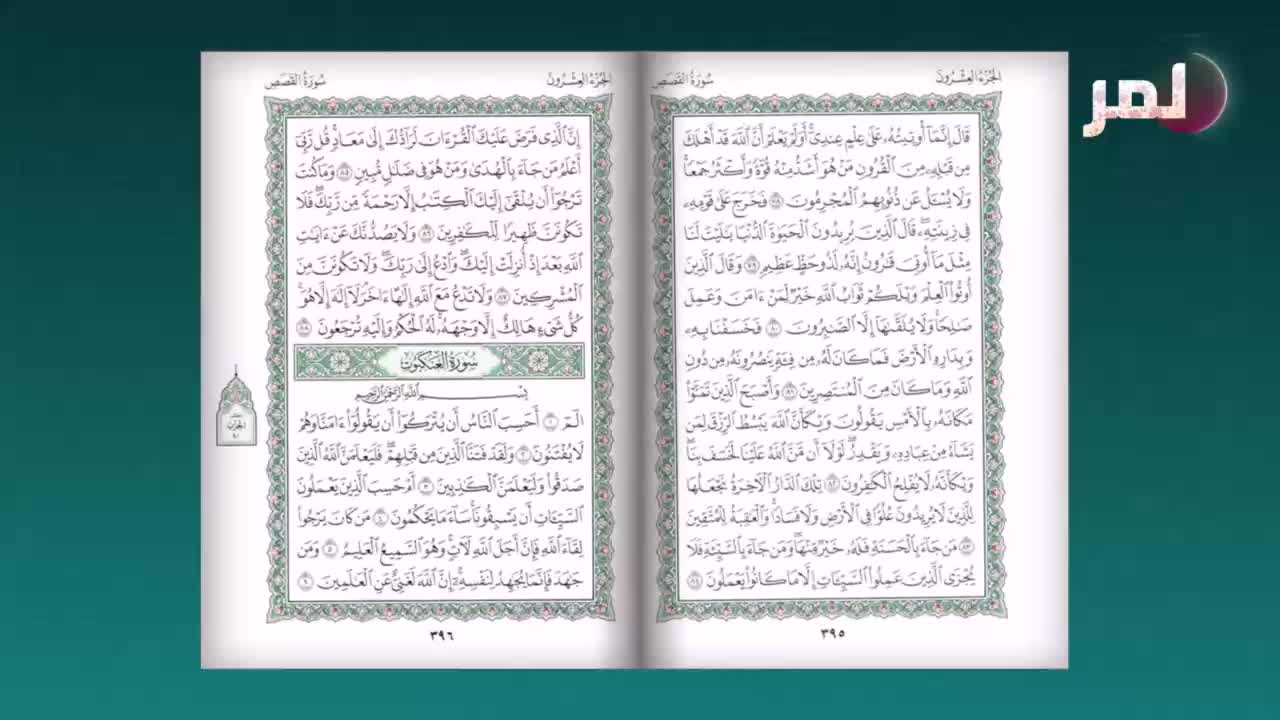 لمر
الجزء العشرون
سورة القصص
قَالَ إِنَّمَآ أُوتِيتُهُۥ عَلَىٰ عِلْمٍ عِندِىٓ أَوَلَمْ يَعْلَمْ أَنَّ ٱللَّهَ قَدْ أَهْلَكَ
مِن قَبْلِهِۦ مِنَ ٱلْقُرُونِ مَنْ هُوَ أَشَدُّ مِنْهُ قُوَّةً وَأَكْثَرُ جَمْعًا
وَلَا يُسْـَٔلُ عَن ذُنُوبِهِمُ ٱلْمُجْرِمُونَ ٧٨ فَخَرَجَ عَلَىٰ قَوْمِهِۦ
فِى زِينَتِهِۦ قَالَ ٱلَّذِينَ يُرِيدُونَ ٱلْحَيَوٰةَ ٱلدُّنْيَا يَٰلَيْتَ لَنَا
مِثْلَ مَآ أُوتِىَ قَٰرُونُ إِنَّهُۥ لَذُو حَظٍّ عَظِيمٍ ٧٩ وَقَالَ ٱلَّذِينَ
أُوتُوا۟ ٱلْعِلْمَ وَيْلَكُمْ ثَوَابُ ٱللَّهِ خَيْرٌ لِّمَنْ ءَامَنَ وَعَمِلَ
صَٰلِحًا وَلَا يُلَقَّىٰهَآ إِلَّا ٱلصَّٰبِرُونَ ٨٠ فَخَسَفْنَا بِهِۦ
وَبِدَارِهِ ٱلْأَرْضَ فَمَا كَانَ لَهُۥ مِن فِئَةٍ يَنصُرُونَهُۥ مِن دُونِ
ٱللَّهِ وَمَا كَانَ مِنَ ٱلْمُنتَصِرِينَ ٨١ وَأَصْبَحَ ٱلَّذِينَ تَمَنَّوْا۟
مَكَانَهُۥ بِٱلْأَمْسِ يَقُولُونَ وَيْكَأَنَّ ٱللَّهَ يَبْسُطُ ٱلرِّزْقَ لِمَن
يَشَآءُ مِنْ عِبَادِهِۦ وَيَقْدِرُ لَوْلَآ أَن مَّنَّ ٱللَّهُ عَلَيْنَا لَخَسَفَ بِنَا
وَيْكَأَنَّهُۥ لَا يُفْلِحُ ٱلْكَٰفِرُونَ ٨٢ تِلْكَ ٱلدَّارُ ٱلْءَاخِرَةُ نَجْعَلُهَا
لِلَّذِينَ لَا يُرِيدُونَ عُلُوًّا فِى ٱلْأَرْضِ وَلَا فَسَادًا وَٱلْعَٰقِبَةُ لِلْمُتَّقِينَ
٨٣ مَن جَآءَ بِٱلْحَسَنَةِ فَلَهُۥ خَيْرٌ مِّنْهَا وَمَن جَآءَ بِٱلسَّيِّئَةِ فَلَا
يُجْزَى ٱلَّذِينَ عَمِلُوا۟ ٱلسَّيِّـَٔاتِ إِلَّا مَا كَانُوا۟ يَعْمَلُونَ ٨٤
٣٩٥
الجزء العشرون
سورة القصص
إِنَّ ٱلَّذِى فَرَضَ عَلَيْكَ ٱلْقُرْءَانَ لَرَآدُّكَ إِلَىٰ مَعَادٍ قُل رَّبِّىٓ
أَعْلَمُ مَن جَآءَ بِٱلْهُدَىٰ وَمَنْ هُوَ فِى ضَلَٰلٍ مُّبِينٍ ٨٥ وَمَا كُنتَ
تَرْجُوٓا۟ أَن يُلْقَىٰٓ إِلَيْكَ ٱلْكِتَٰبُ إِلَّا رَحْمَةً مِّن رَّبِّكَ فَلَا
تَكُونَنَّ ظَهِيرًا لِّلْكَٰفِرِينَ ٨٦ وَلَا يَصُدُّنَّكَ عَنْ ءَايَٰتِ
ٱللَّهِ بَعْدَ إِذْ أُنزِلَتْ إِلَيْكَ وَٱدْعُ إِلَىٰ رَبِّكَ وَلَا تَكُونَنَّ مِنَ
ٱلْمُشْرِكِينَ ٨٧ وَلَا تَدْعُ مَعَ ٱللَّهِ إِلَٰهًا ءَاخَرَ لَآ إِلَٰهَ إِلَّا هُوَ
كُلُّ شَىْءٍ هَالِكٌ إِلَّا وَجْهَهُۥ لَهُ ٱلْحُكْمُ وَإِلَيْهِ تُرْجَعُونَ ٨٨
سورة العنكبوت
بِسْمِ ٱللَّهِ ٱلرَّحْمَٰنِ ٱلرَّحِيمِ
الٓمٓ ١ أَحَسِبَ ٱلنَّاسُ أَن يُتْرَكُوٓا۟ أَن يَقُولُوٓا۟ ءَامَنَّا وَهُمْ
لَا يُفْتَنُونَ ٢ وَلَقَدْ فَتَنَّا ٱلَّذِينَ مِن قَبْلِهِمْ فَلَيَعْلَمَنَّ ٱللَّهُ ٱلَّذِينَ
صَدَقُوا۟ وَلَيَعْلَمَنَّ ٱلْكَٰذِبِينَ ٣ أَمْ حَسِبَ ٱلَّذِينَ يَعْمَلُونَ
ٱلسَّيِّـَٔاتِ أَن يَسْبِقُونَا سَآءَ مَا يَحْكُمُونَ ٤ مَن كَانَ يَرْجُوا۟
لِقَآءَ ٱللَّهِ فَإِنَّ أَجَلَ ٱللَّهِ لَءَاتٍ وَهُوَ ٱلسَّمِيعُ ٱلْعَلِيمُ ٥ وَمَن
جَٰهَدَ فَإِنَّمَا يُجَٰهِدُ لِنَفْسِهِۦٓ إِنَّ ٱللَّهَ لَغَنِىٌّ عَنِ ٱلْعَٰلَمِينَ ٦
٣٩٦